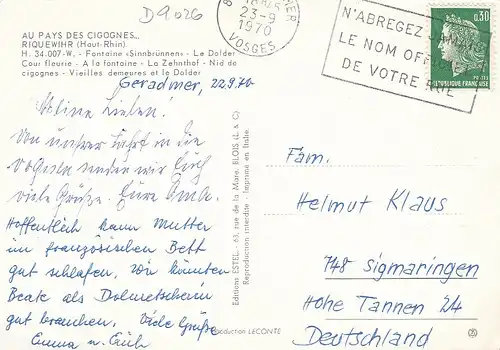 D9026
AU PAYS DES CIGOGNES...
RIQUEWIHR (Haut-Rhin)
H. 34.007-W. - Fontaine «Sinnbrünnen» - Le Dolder
Cour fleurie - A la fontaine - La Zehnthof - Nid de
cigognes - Vieilles demeures et le Dolder
18H45
23-9
1970
VOSGES
N'ABREGEZ JAMAIS
LE NOM OFFICIEL
DE VOTRE RUE
0,30
POSTES
Geradmer, 22.9.70
Meine Lieben!
Von unserer Fahrt in die
Vogesen senden wir Euch
viele Grüße. Eure Oma.
Hoffentlich kann Mutter
im französischen Bett
gut schlafen. Wir könnten
Beate als Dolmetscherin
gut brauchen. Viele Grüße
Emma u.
Editions ESTEL - 63, rue de la Mare, BLOIS (L. & C)
Reproduction interdite - Imprimé en Italie
Production LECONTE
Fam.
Helmut Klaus
748 Sigmaringen
Hohe Tannen 24
Deutschland